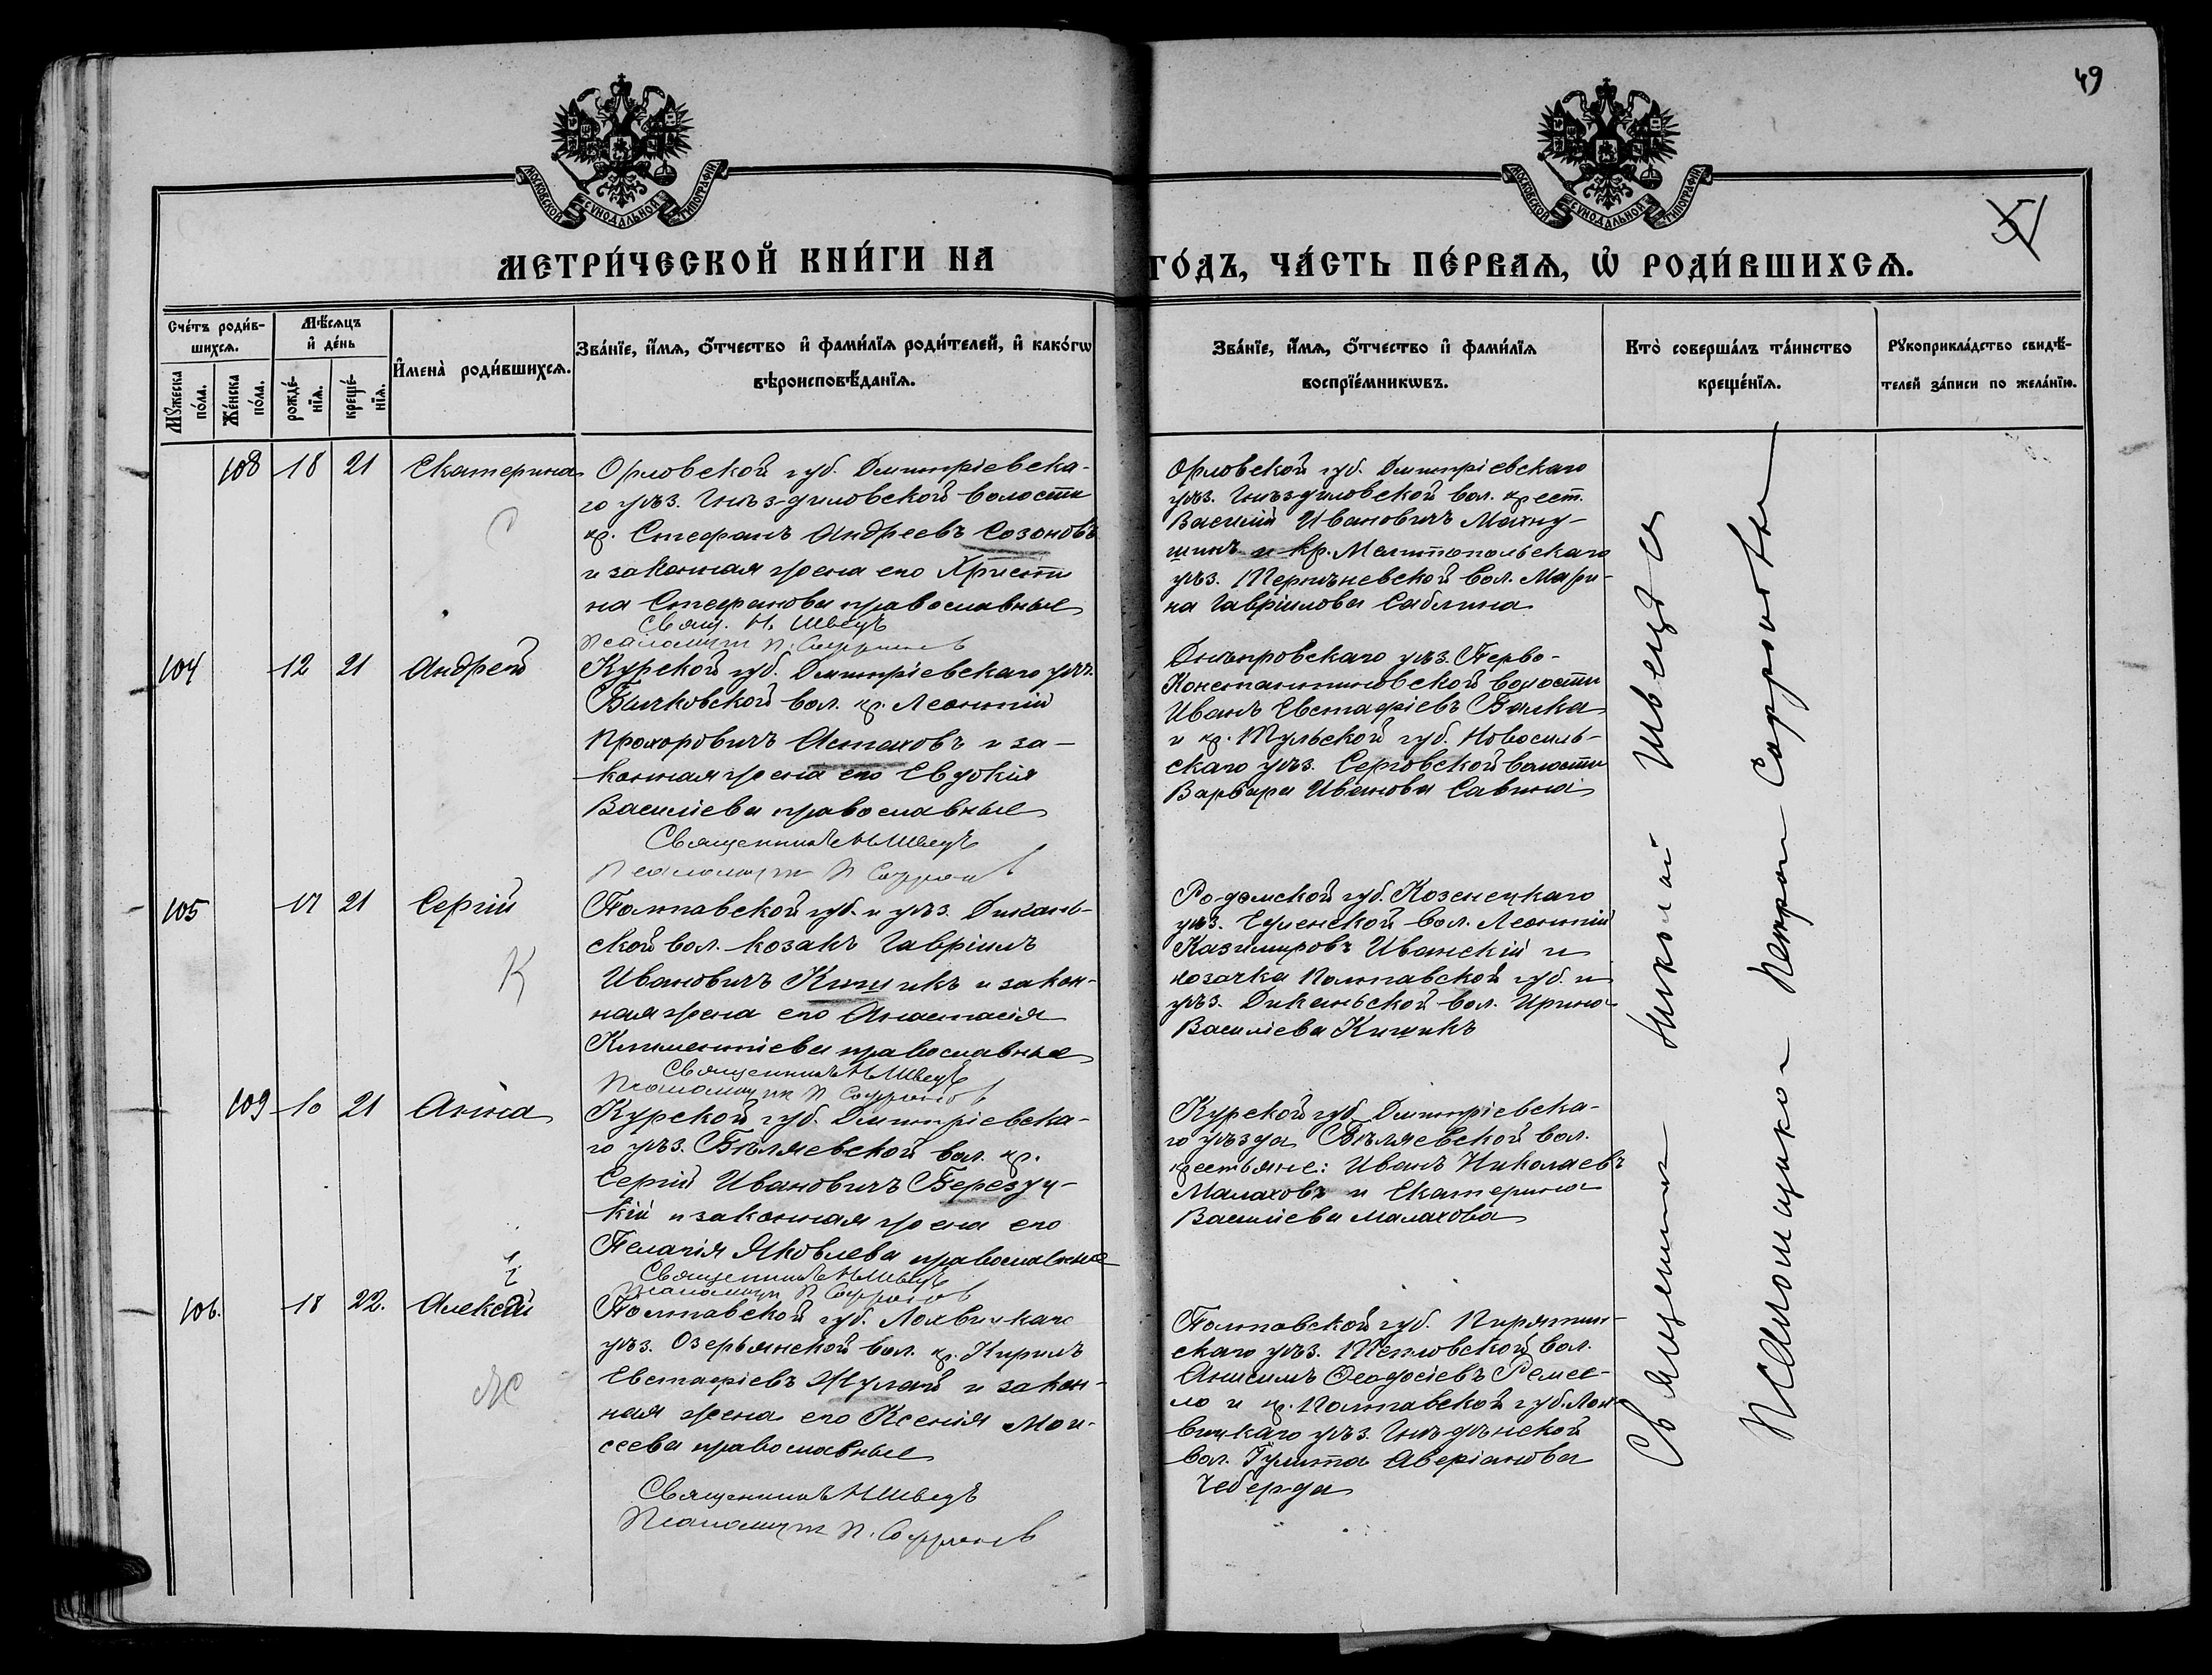 49
МОСКОВСКОЙ СѴНОДАЛЬНОЙ ТИПОГРАФІИ
МОСКОВСКОЙ СѴНОДАЛЬНОЙ ТИПОГРАФІИ
МЕТРИ́ЧЕСКОЙ КНИ́ГИ НА ГО́ДЪ, ЧА́СТЬ ПЕ́РВАѦ, Ѡ҆ РОДИ́ВШИХСѦ.
Сче́тъ роди́в-
шихсѧ.
Мѣ́сѧцъ
и҆ де́нь
Мꙋ́жеска
по́ла.
Же́нска
по́ла.
рожде́-
нїѧ.
креще́-
нїѧ.
И҆мена̀ роди́вшихсѧ.
Зва́нїе, и҆́мѧ, ѻ҆́тчество и҆ фами́лїѧ роди́телей, и҆ како́гѡ
вѣроисповѣ́данїѧ.
Зва́нїе, и҆́мѧ, ѻ҆́тчество и҆ фами́лїѧ
воспрїе́мникѡвъ.
Кто̀ соверша́лъ та́инство
креще́нїѧ.
Рꙋкоприкла́дство свидѣ́-
телей за́писи по жела́нїю.
108 18 21 Екатерина
Орловской губ. Дмитріевска-
го уѣз. Гнѣздиловской волости
кр. Стефанъ Андреевъ Созоновъ
и законная жена его Христи
на Стефанова православные
Свящ. Н. Швецъ
Псаломщик П. Сафронов
Орловской губ. Дмитріевскаго
уѣз. Гнѣздиловской вол. крест.
Василій Ивановичъ Махну-
шинъ и кр. Мелитопольскаго
уѣз. Мари-
на Гавріилова Саблина
104 12 21 Андрей
Курской губ. Дмитріевскаго уѣз.
Бычковской вол. кр. Леонтій
Прохоровичъ Астаховъ и за-
конная жена его Евдокія
Василіева православные
Священникъ Н Швецъ
Псаломщик П Сафронов
Днѣпровскаго уѣз. Перво-
Константиновской волости
Иванъ Евстафіевъ Балка
и кр. Тульской губ. Новосиль-
скаго уѣз. волости
Варвара Иванова Савина
105 17 21 Сергій
К
Полтавской губ. и уѣз. Дикань-
ской вол. козакъ Гавріилъ
Ивановичъ Кишикъ и закон-
ная жена его Анастасія
Климентіева православные
Священникъ Н Швецъ
Псаломщик П Сафронов
Радомской губ. Козенецкаго
уѣз. вол. Леонтій
Казимировъ Иванскій и
козачка Полтавской губ. и
уѣз. Диканьской вол. Ирина
Василіева Кишикъ
109 10 21 Анна
Курской губ. Дмитріевска-
го уѣз. Бѣляевской вол. кр.
Сергій Ивановичъ Березуц-
кій и законная жена его
Пелагія Яковлева православные
Священникъ Н Швецъ
Псаломщик П Сафронов
Курской губ. Дмитріевска-
го уѣзда Бѣляевской вол.
крестьяне: Иванъ Николаевъ
Малаховъ и Екатерина
Василіева Малахова
106. 18 22. Алексѣй
Ж
Полтавской губ. Лохвицкаго
уѣз. Озерянской вол. кр. Кирилъ
Евстафіевъ Жулай и закон-
ная жена его Ксенія Мои-
сеева православные
Священникъ Н Швецъ
Псаломщик П. Сафронов
Полтавской губ. Пирятин-
скаго уѣз. вол.
Анисимъ Ѳеодосіевъ Ремес-
ло и кр. Полтавской губ. Лох-
вицкаго уѣз. Гнѣдинской
вол. Аверіанова
Чеберда
Священник Николай Швецъ и
Псаломщик Петр Сафронов